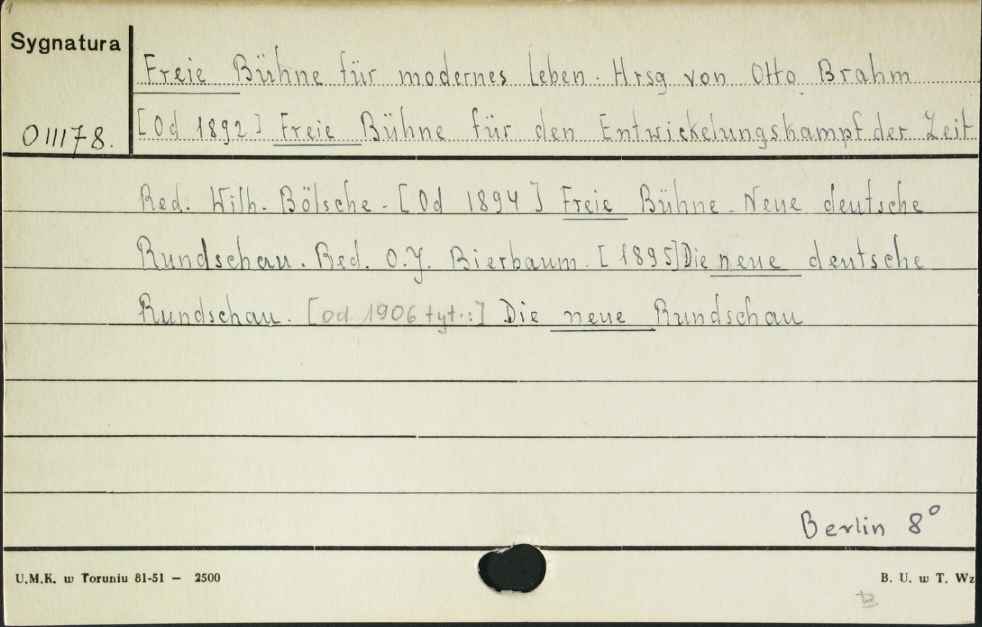 Sygnatura
Freie Bühne für modernes Leben. Hrsg von Otto Brahm
011178. [Od 1892] Freie Bühne für den Entwickelungskampf der Zeit
Red. Wilh. Bölsche - [Od 1894] Freie Bühne. Neue deutsche
Rundschau. Red. O.J. Bierbaum. [1895] Die neue deutsche
Rundschau. [od 1906 tyt.:] Die neue Rundschau
Berlin 8°
U.M.K. w Toruniu 81-51 — 2500
B. U. w T. Wz